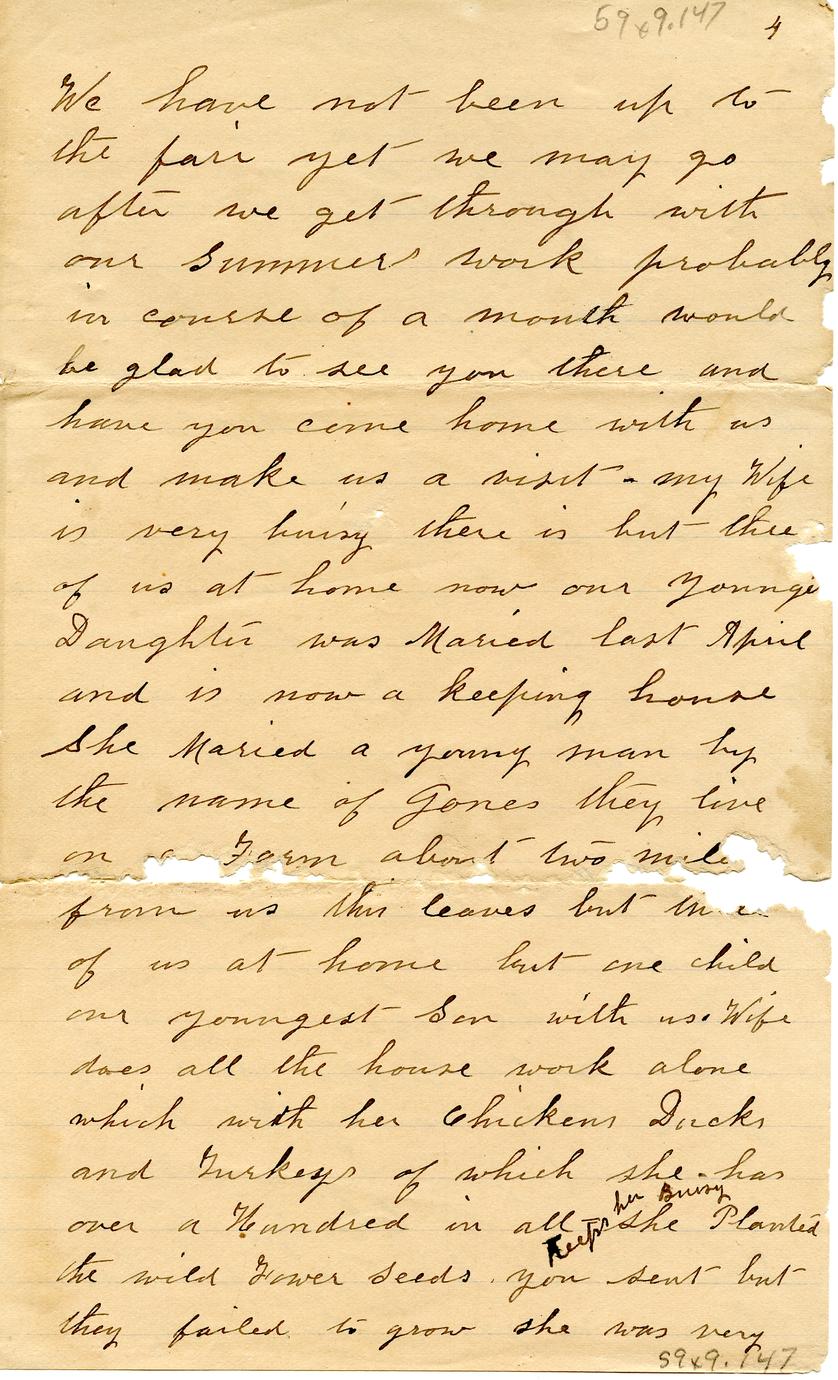 59x9.147
4
We have not been up to
the fair yet we may go
after we get through with
our Summer work probably
in course of a month would
be glad to see you there and
have you come home with us
and make us a visit - my Wife
is very buisy there is but thee
of us at home now our Younge
Daughter was Maried last April
and is now a keeping house
She Maried a young man by
the name of Jones they live
on a Farm about two mile
from us this leaves but
of us at home but one child
our youngest Son with us. Wife
does all the house work alone
which with her Chickens Ducks
and Turkeys of which she has
over a Hundred in all - Keeps her Buisy She Planted
the wild Fower seeds you sent but
they failed to grow she was very
59x9.147